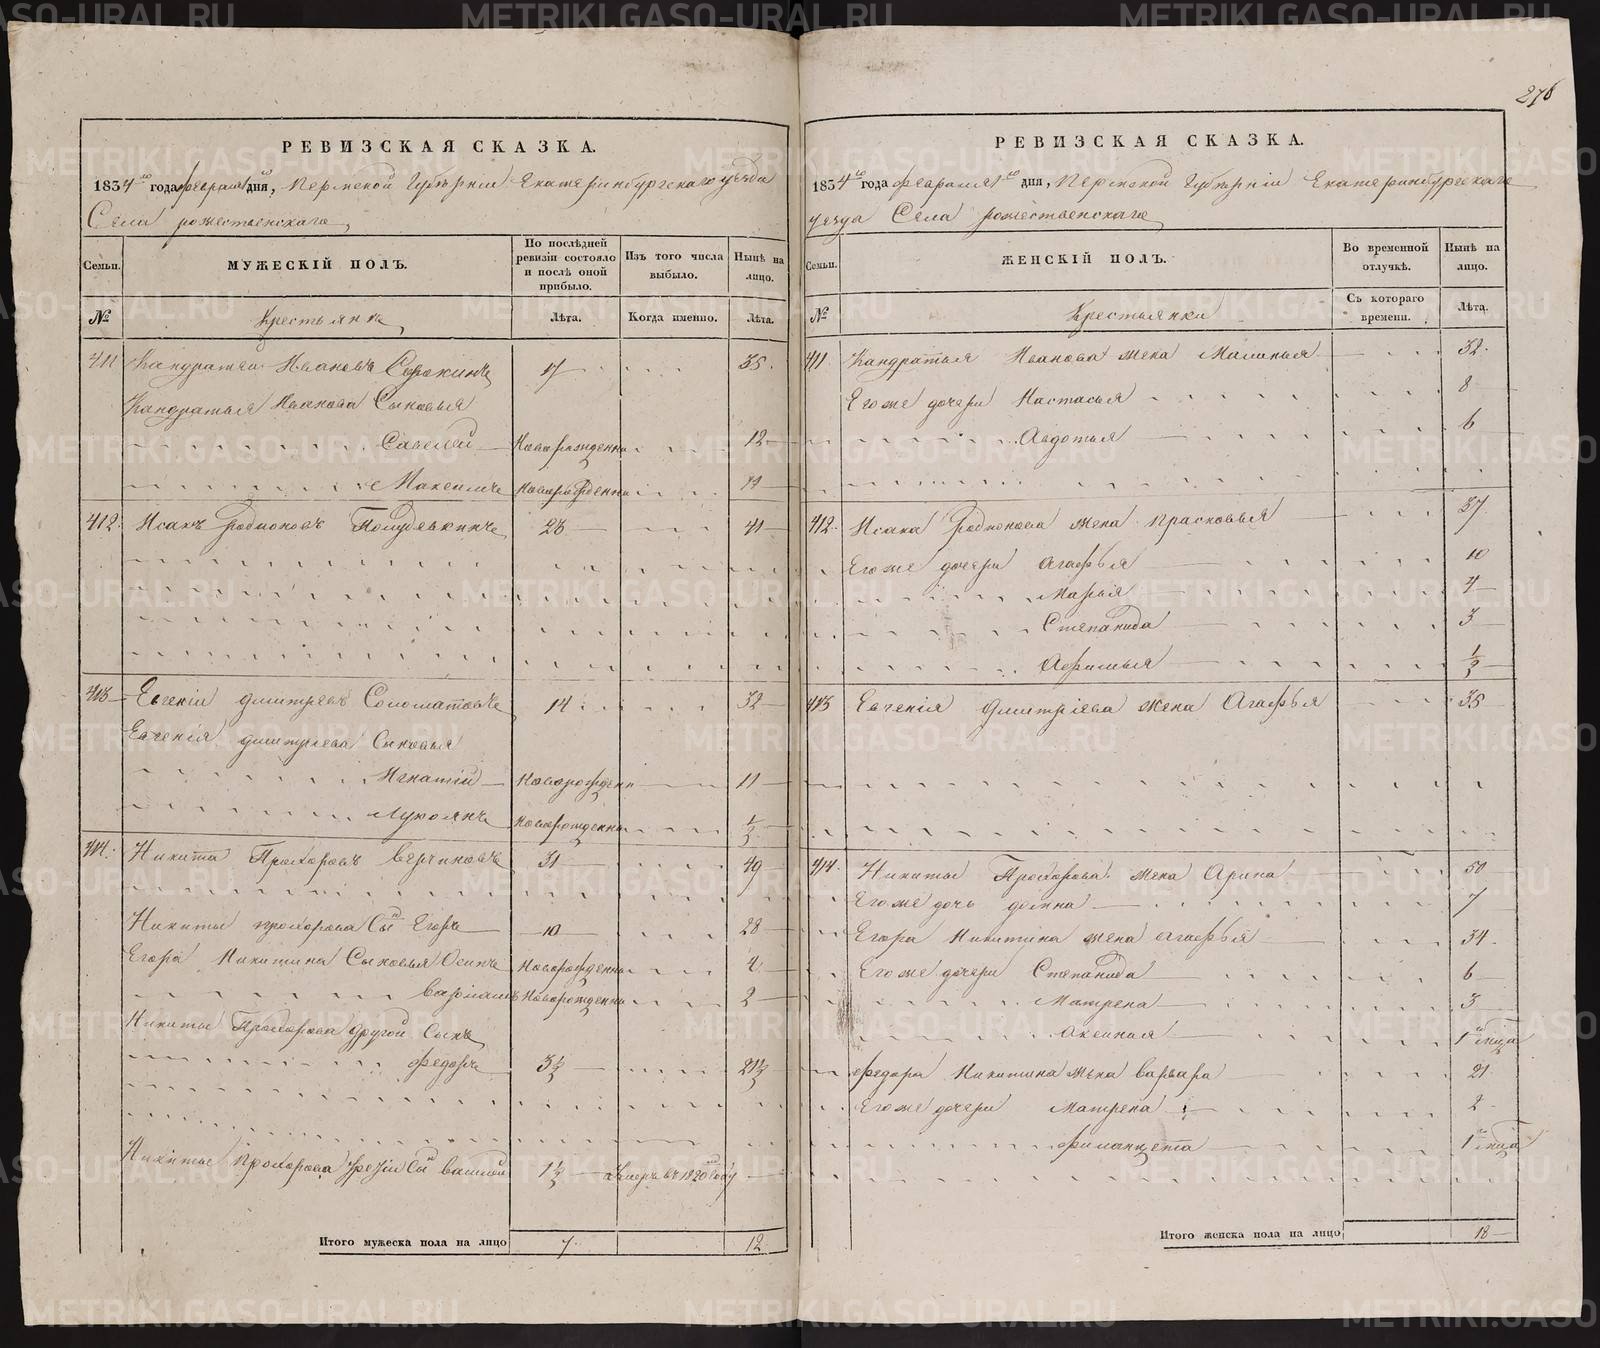 276
РЕВИЗСКАЯ СКАЗКА.
1834го года февраля дня, Пермской Губернiи Екатеринбургскаго уезда
Села рожественскаго
Семьи. МУЖЕСКIЙ ПОЛЪ. По послѣдней ревизiи состояло и послѣ оной прибыло. Изъ того числа выбыло. Нынѣ на лицо.
№ Крестьяне Лѣта. Когда именно. Лѣта.
411 Кандратей Ивановъ Сорокинъ 17 35
Кандратья Иванова Сыновья
Савелей Новорожденны 12
Максимъ Новорожденны
412 Исакъ Родионовъ 23 41
413 Евгенiй дмитревъ Соломатовъ 14 32
Евгенiя дмитрiева Сыновья
Игнатiй Новорожденн 11
Лукоянъ Новорожденны 1/2
414 Никита Прохоровъ 31 49
Никиты прохорова Сынъ Егоръ 10 28
Егора Никитина Сыновья Осипъ Новорожденны 4
Варламъ Новорожденны 2
Никиты Прохорова другой Сынъ
Федоръ 3 1/2 21 1/2
Никиты Прохорова третiй Сынъ 1 1/2 Умеръ въ 1820 году
Итого мужеска пола на лицо 7 12
РЕВИЗСКАЯ СКАЗКА.
1834го года февраля 1го дня, Пермской Губернiи Екатеринбургскаго
уезда Села рожественскаго
Семьи. ЖЕНСКIЙ ПОЛЪ. Во временной отлучкѣ. Нынѣ на лицо.
№ Крестьянки Съ котораго времени. Лѣта.
411 Кандратья Иванова жена Маланья 32
Его же дочери Настасья 8
Авдотья 6
412 Исака Родионова жена Прасковья 37
Его же дочери Агафья 10
Марья 4
Степанида 3
Афимья 1/2
413 Евгенiя дмитрiева жена Агафья 35
414 Никиты Прохорова жена Арина 50
Его же дочь домна 7
Егора Никитина жена агафья 34
Его же дочери Степанида 6
Матрена 3
Аксинья 1го мца
Федора Никитина жена варвара 21
Его же дочери Матрена 2
1го мца
Итого женска пола на лицо 18
METRIKI.GASO-URAL.RU